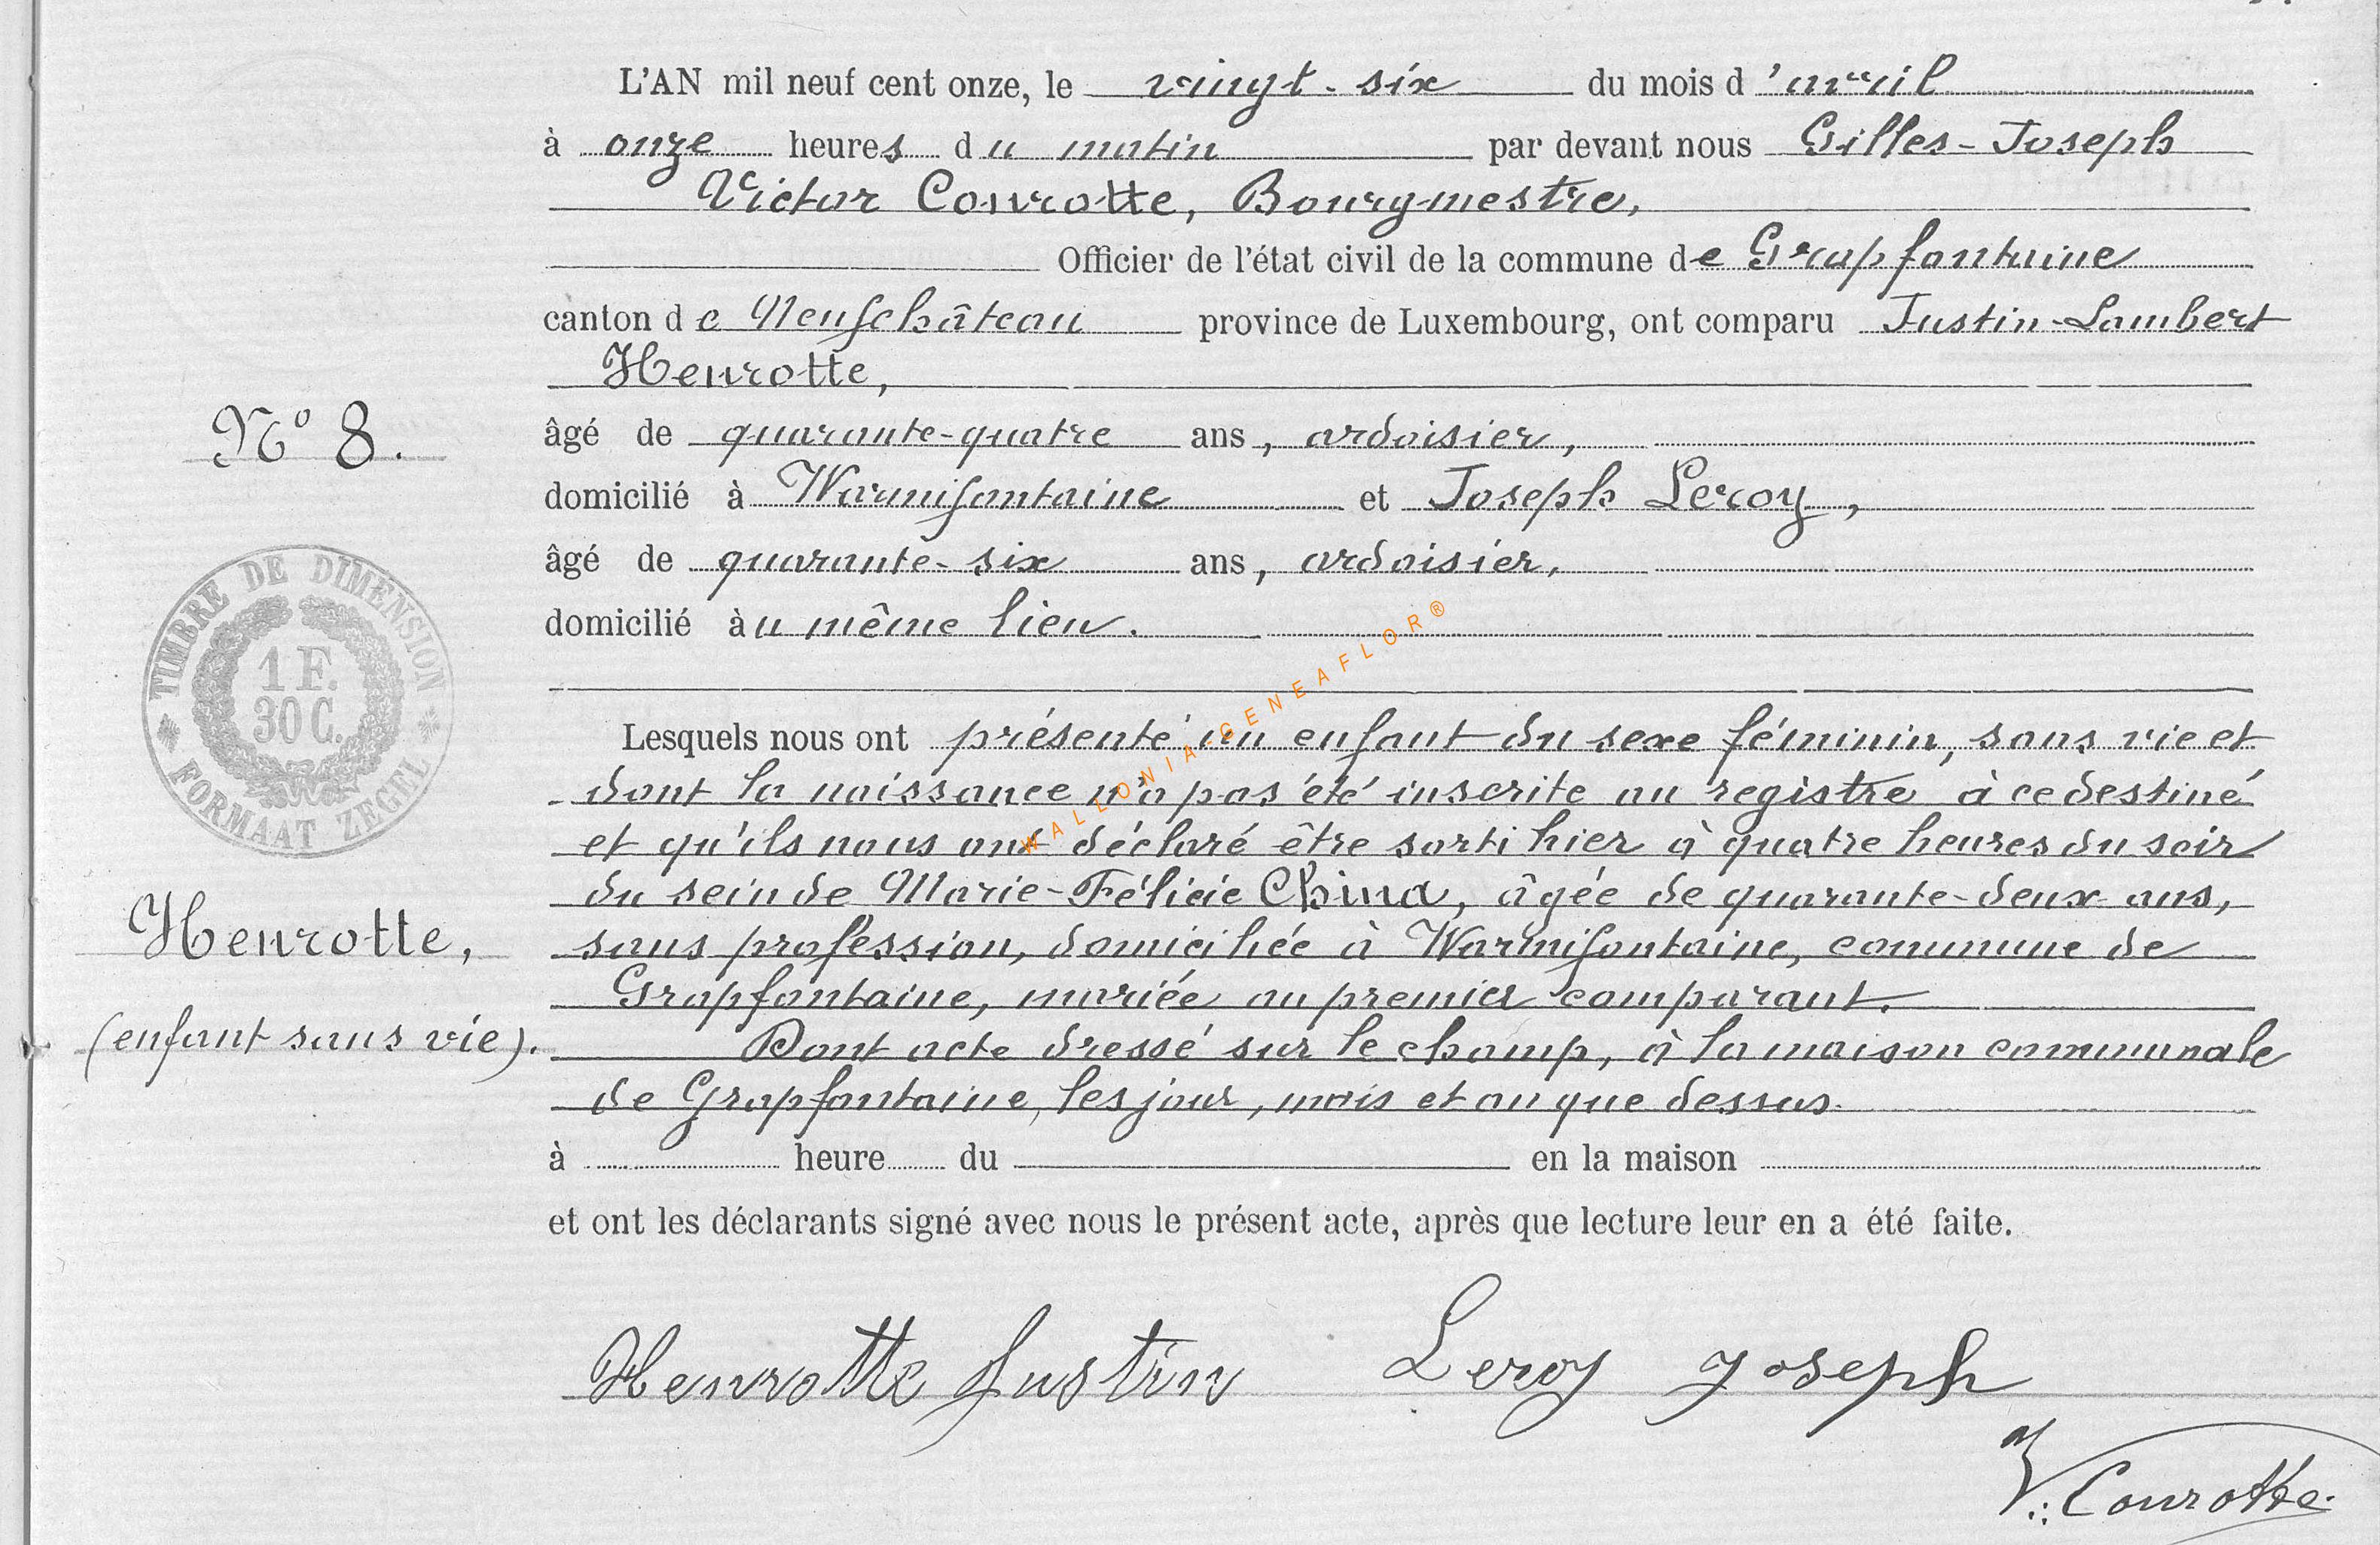 L'AN mil neuf cent onze, le vingt-six du mois d'avril
à onze heures du matin par devant nous Gilles-Joseph
Victor Conrotte, Bourgmestre,
Officier de l'état civil de la commune de Grapfontaine
canton de Neufchâteau province de Luxembourg, ont comparu Justin-Lambert
Henrotte,
N° 8.
âgé de quarante-quatre ans, ardoisier,
domicilié à Warmifontaine et Joseph Leroy,
âgé de quarante-six ans, ardoisier,
domicilié àu même lieu.
TIMBRE DE DIMENSION
1 F.
30 C.
FORMAAT ZEGEL
WALLONIA-GENEAFLOR®
Lesquels nous ont présenté un enfant du sexe féminin, sans vie et
dont la naissance n'a pas été inscrite au registre à ce destiné
et qu'ils nous ont déclaré être sorti hier à quatre heures du soir
du sein de Marie-Félicie China, âgée de quarante-deux ans,
Henrotte,
sans profession, domiciliée à Warmifontaine, commune de
Grapfontaine, mariée au premier comparant.
(enfant sans vie).
Dont acte dressé sur le champ, à la maison communale
de Grapfontaine, les jour, mois et an que dessus.
à heure du en la maison
et ont les déclarants signé avec nous le présent acte, après que lecture leur en a été faite.
Henrotte Justin Leroy Joseph
V. Conrotte